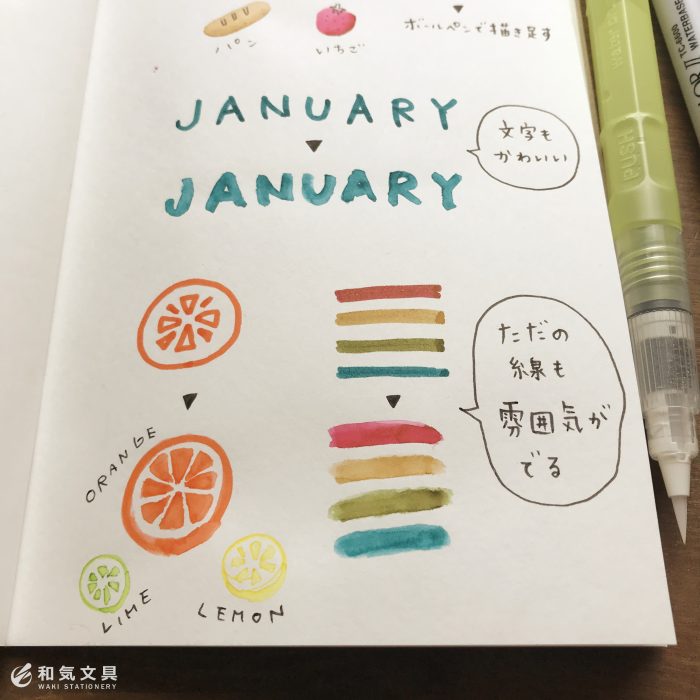 パン
いちご
▼
ボールペンで描き足す
JANUARY
▼
JANUARY
文字も
かわいい
▼
▼
ただの
線も
雰囲気が
でる
ORANGE
LIME
LEMON
PUSH
TC-4000
WATERBASE
和気文具
WAKI STATIONERY